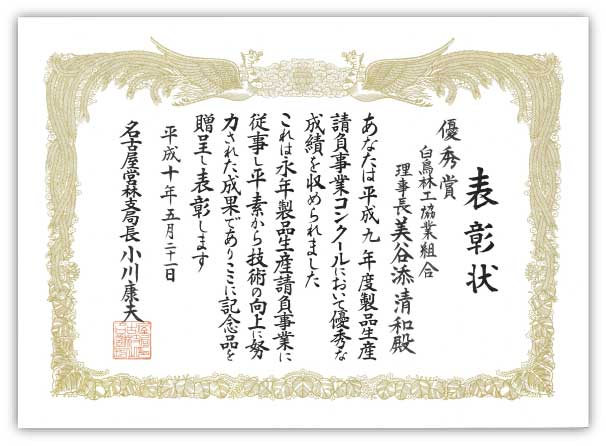 表彰状
優秀賞
白鳥林工協業組合
理事長美谷添清和殿
あなたは平成九年度製品生産
請負事業コンクールにおいて優秀な
成績を収められました
これは永年製品生産請負事業に
従事し平素から技術の向上に努
力された成果でありここに記念品を
贈呈し表彰します
平成十年五月二十一日
名古屋営林支局長小川康夫